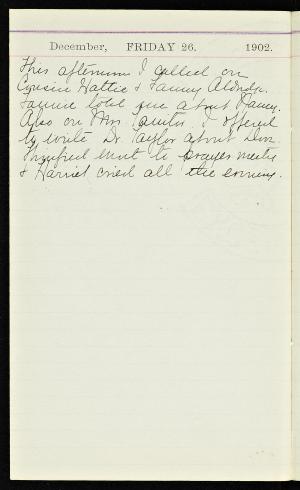 December, FRIDAY 26. 1902.
This afternoon I called on
Cousin Hattie & Fanny Aldridge.
Fannie told me about Nancy.
Also on Mrs. Curtis. I offered
to write Dr. Taylor about Don.
Winifred went to prayer meeting
& Harriet cried all the evening.